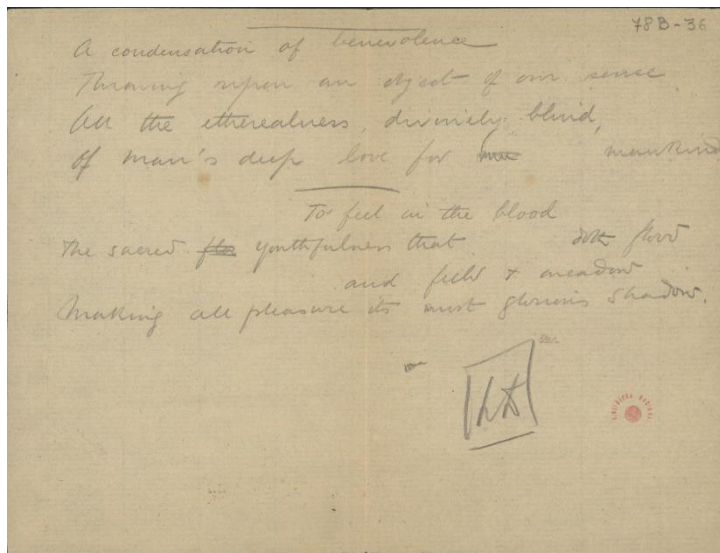 78B-36
A condensation of benevolence
Throwing upon an object of our sense
All the etherealness, divinely blind,
Of man's deep love for mankind
To feel in the blood
The sacred youthfulness that doth flood
and field & meadow
Making all pleasure its most glorious shadow.